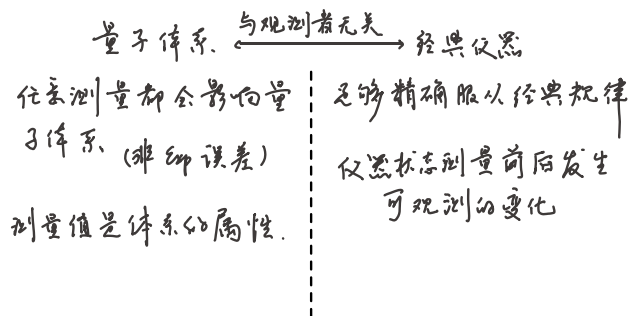 与观测者无关
量子体系 经典仪器
任意测量都会影响量
子体系 (非 误差)
测量值是体系的属性.
足够精确服从经典规律
仪器状态测量前后发生
可观测的变化